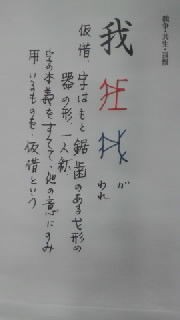 我
が
われ
仮借、字はもと鋸歯のある戈形の
器の形。一人称。
字の本義をすてて、他の意にのみ
用いるものを、仮借という